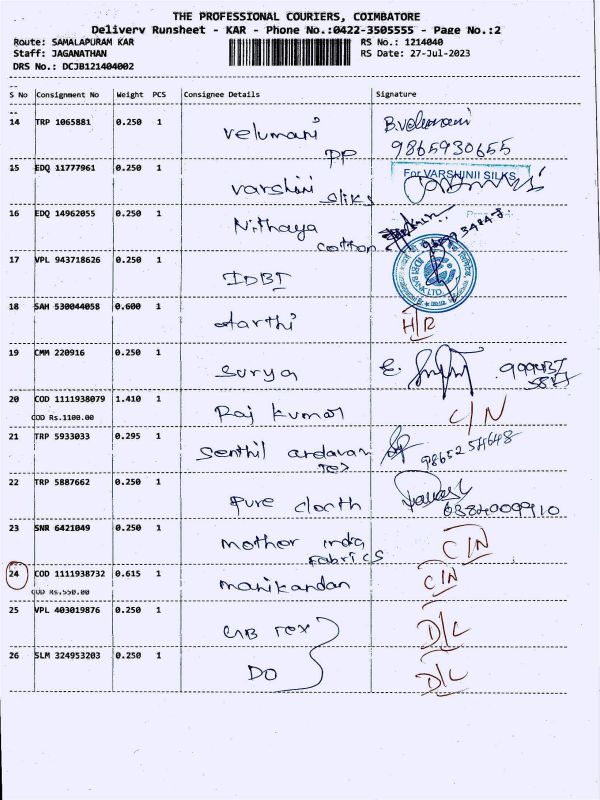 THE PROFESSIONAL COURIERS, COIMBATORE
Delivery Runsheet - KAR - Phone No.:0422-3505555 - Page No.:2
Route: SAMALAPURAM KAR RS No.: 1214040
Staff: JAGANATHAN RS Date: 27-Jul-2023
DRS No.: DCJB121404002
S No Consignment No Weight PCS Consignee Details Signature
14 TRP 1065881 0.250 1 Velumani PP B.Velumani
9865930655
15 EDQ 11777961 0.250 1 varshini silks For VARSHINII SILKS
16 EDQ 14962055 0.250 1 Nithaya cotton
17 VPL 943718626 0.250 1 IDBI BANK LTD.
18 SAH 530044058 0.600 1 Aarthi H/R
19 CMM 220916 0.250 1 Surya E.
20 COD 1111938079 1.410 1 Raj kumar C/N
COD Rs.1100.00
21 TRP 5933033 0.295 1 Senthil andavan Tex
22 TRP 5887662 0.250 1 Pure cloath
6384009910
23 SNR 6421049 0.250 1 mother india Fabrics C/N
24 COD 1111938732 0.615 1 manikandan C/N
COD Rs.550.00
25 VPL 403019876 0.250 1 Tex D/L
26 SLM 324953203 0.250 1 DO D/L